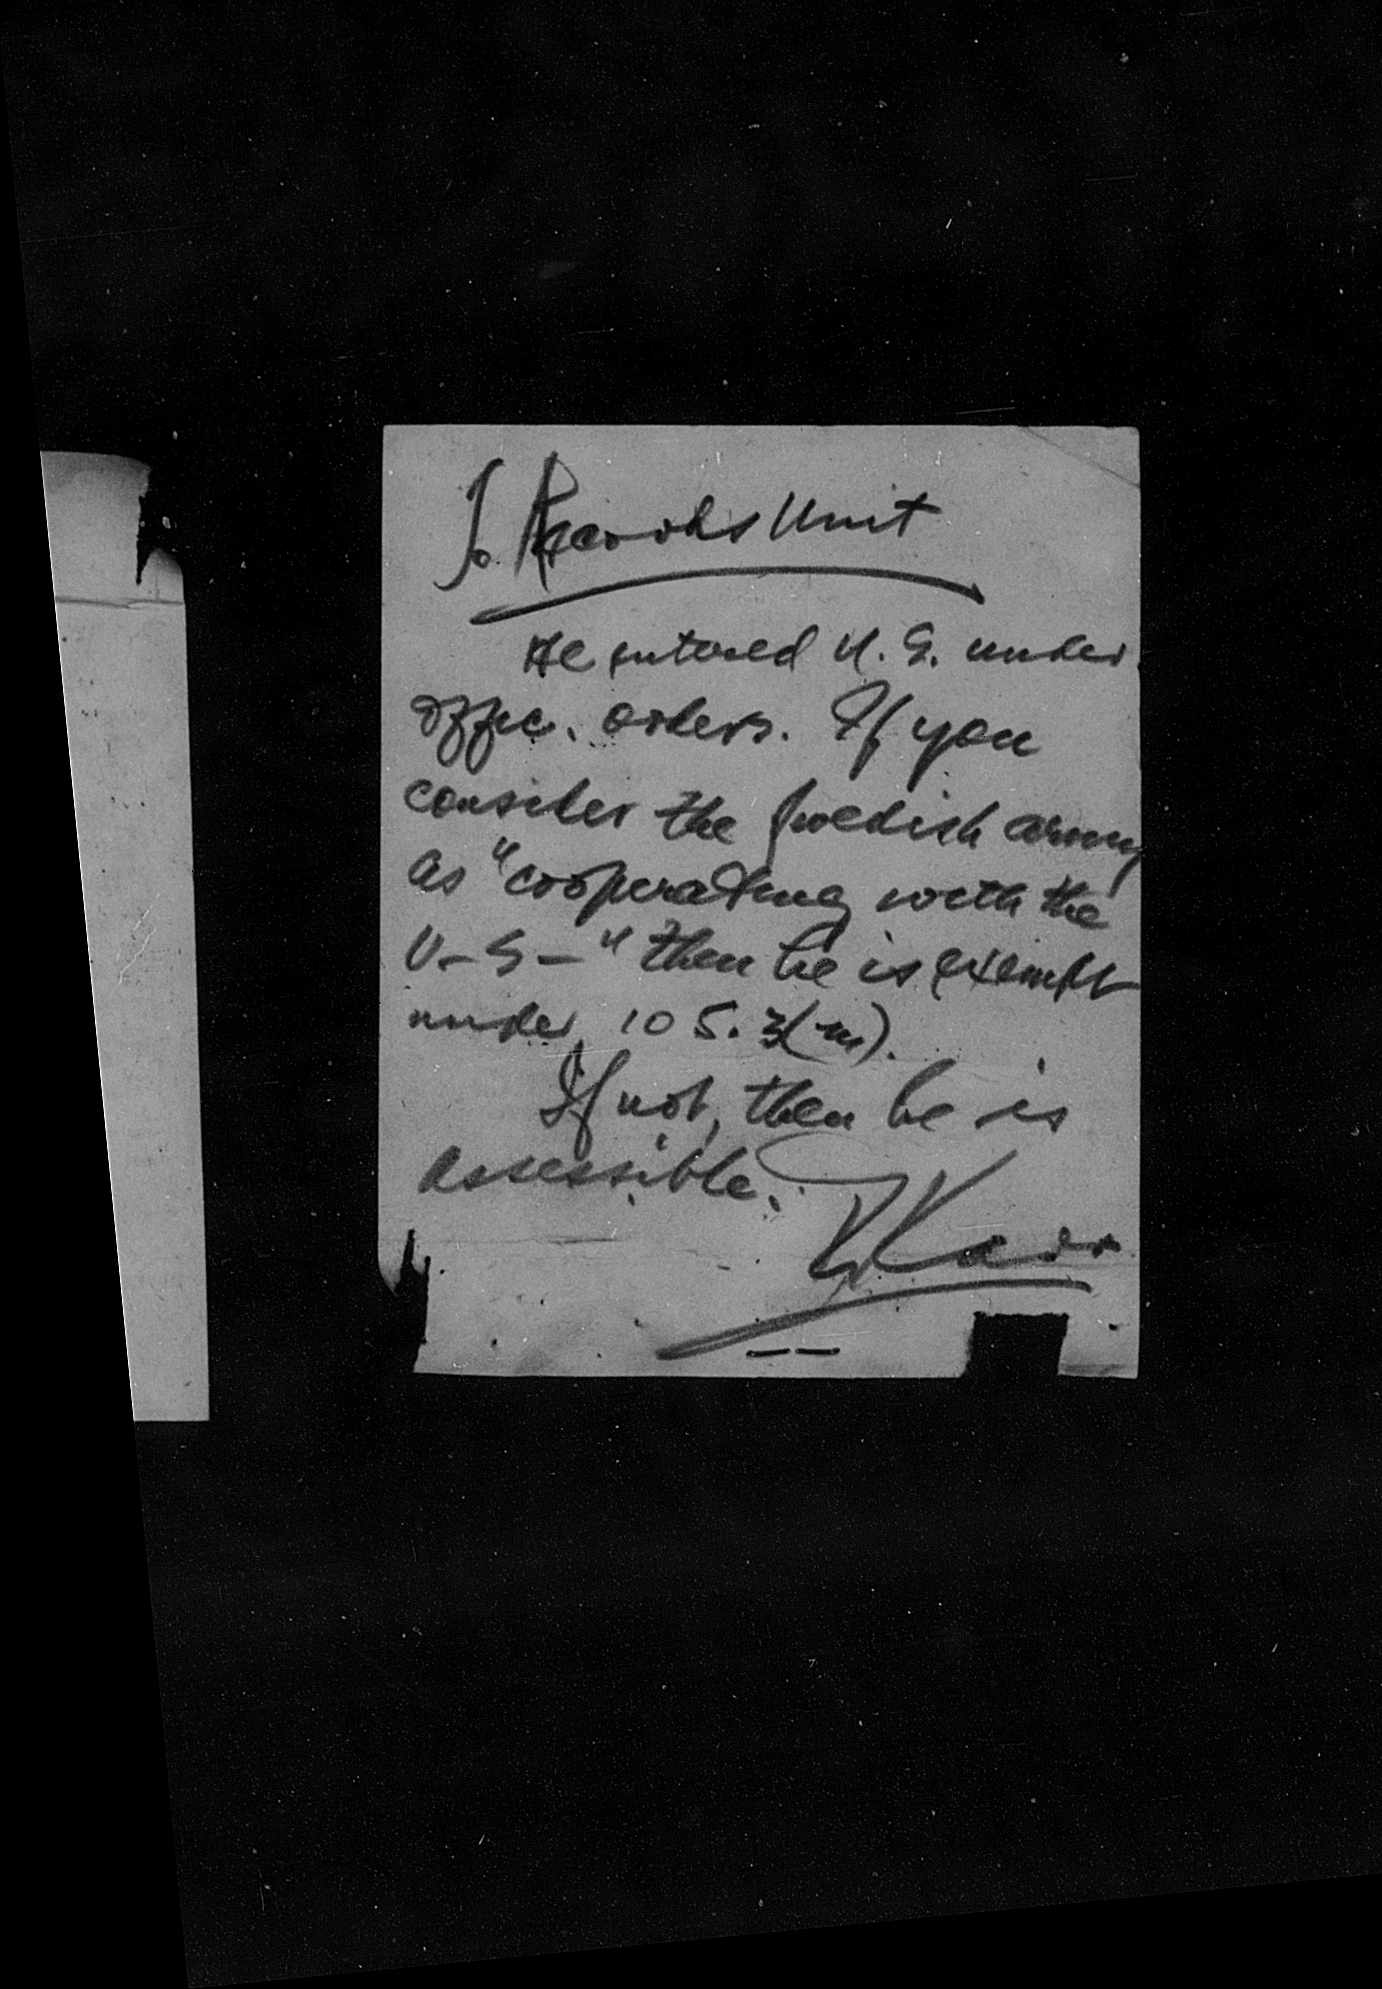 To Records Unit
He entered U.S. under
offic. orders. If you
consider the Swedish army
as "cooperating with the
U-S-" then he is exempt
under 105.3(m).
If not, then he is
assessible.